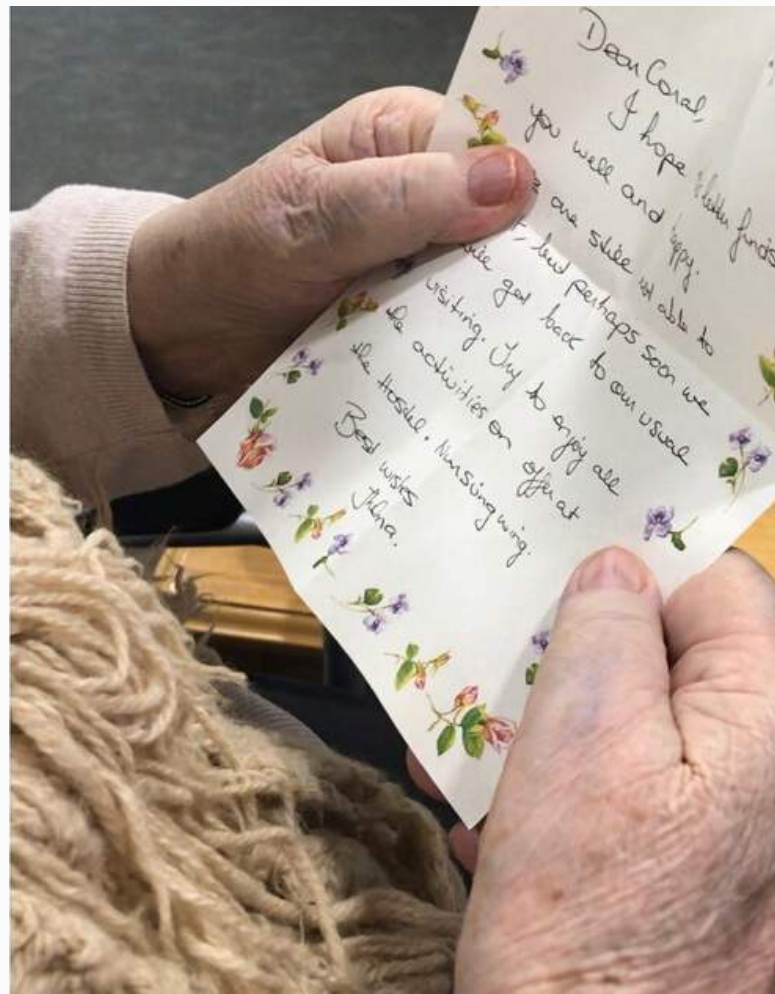 Dear Coral,
I hope letter finds
you well and
are still not able to
but perhaps soon we
get back to our usual
visiting. Try to enjoy all
the activities on offer at
the Hostel. Nursing wing.
Best wishs